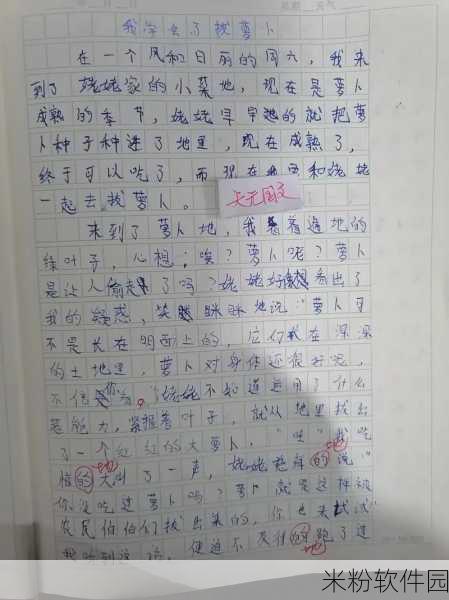 我学会了拔萝卜
在一个风和日丽的周六，我来
到了姥姥家的小菜地，现在是萝卜
成熟的季节，姥姥早早地的就把萝
卜种子种进了地里，现在成熟了，
终于可以吃了，而现在 和姥姥
一起去拔萝卜。
天元周文
来到了萝卜地，我看着遍地的
绿叶子，心想：唉？萝卜呢？萝卜
是让人偷走了吗？姥姥好像看出了
我的疑惑，笑眯眯地说“萝卜可
不是长在明面上的，应 在深深
的土地里，萝卜对身体还很好呢，
不信 你 。”姥姥不知道运用了什么
超能力，紧握着叶子，就从地里拔出
了一个红红的大萝卜，“哇”我吃
地
惊的大叫了一声，姥姥 的说“
地
你没吃过萝卜吗？萝卜就是这样被
农民伯伯们拔出来的，你也来试试”
我听到这 ，便迫不及待的跑了过
地
米粉软件园